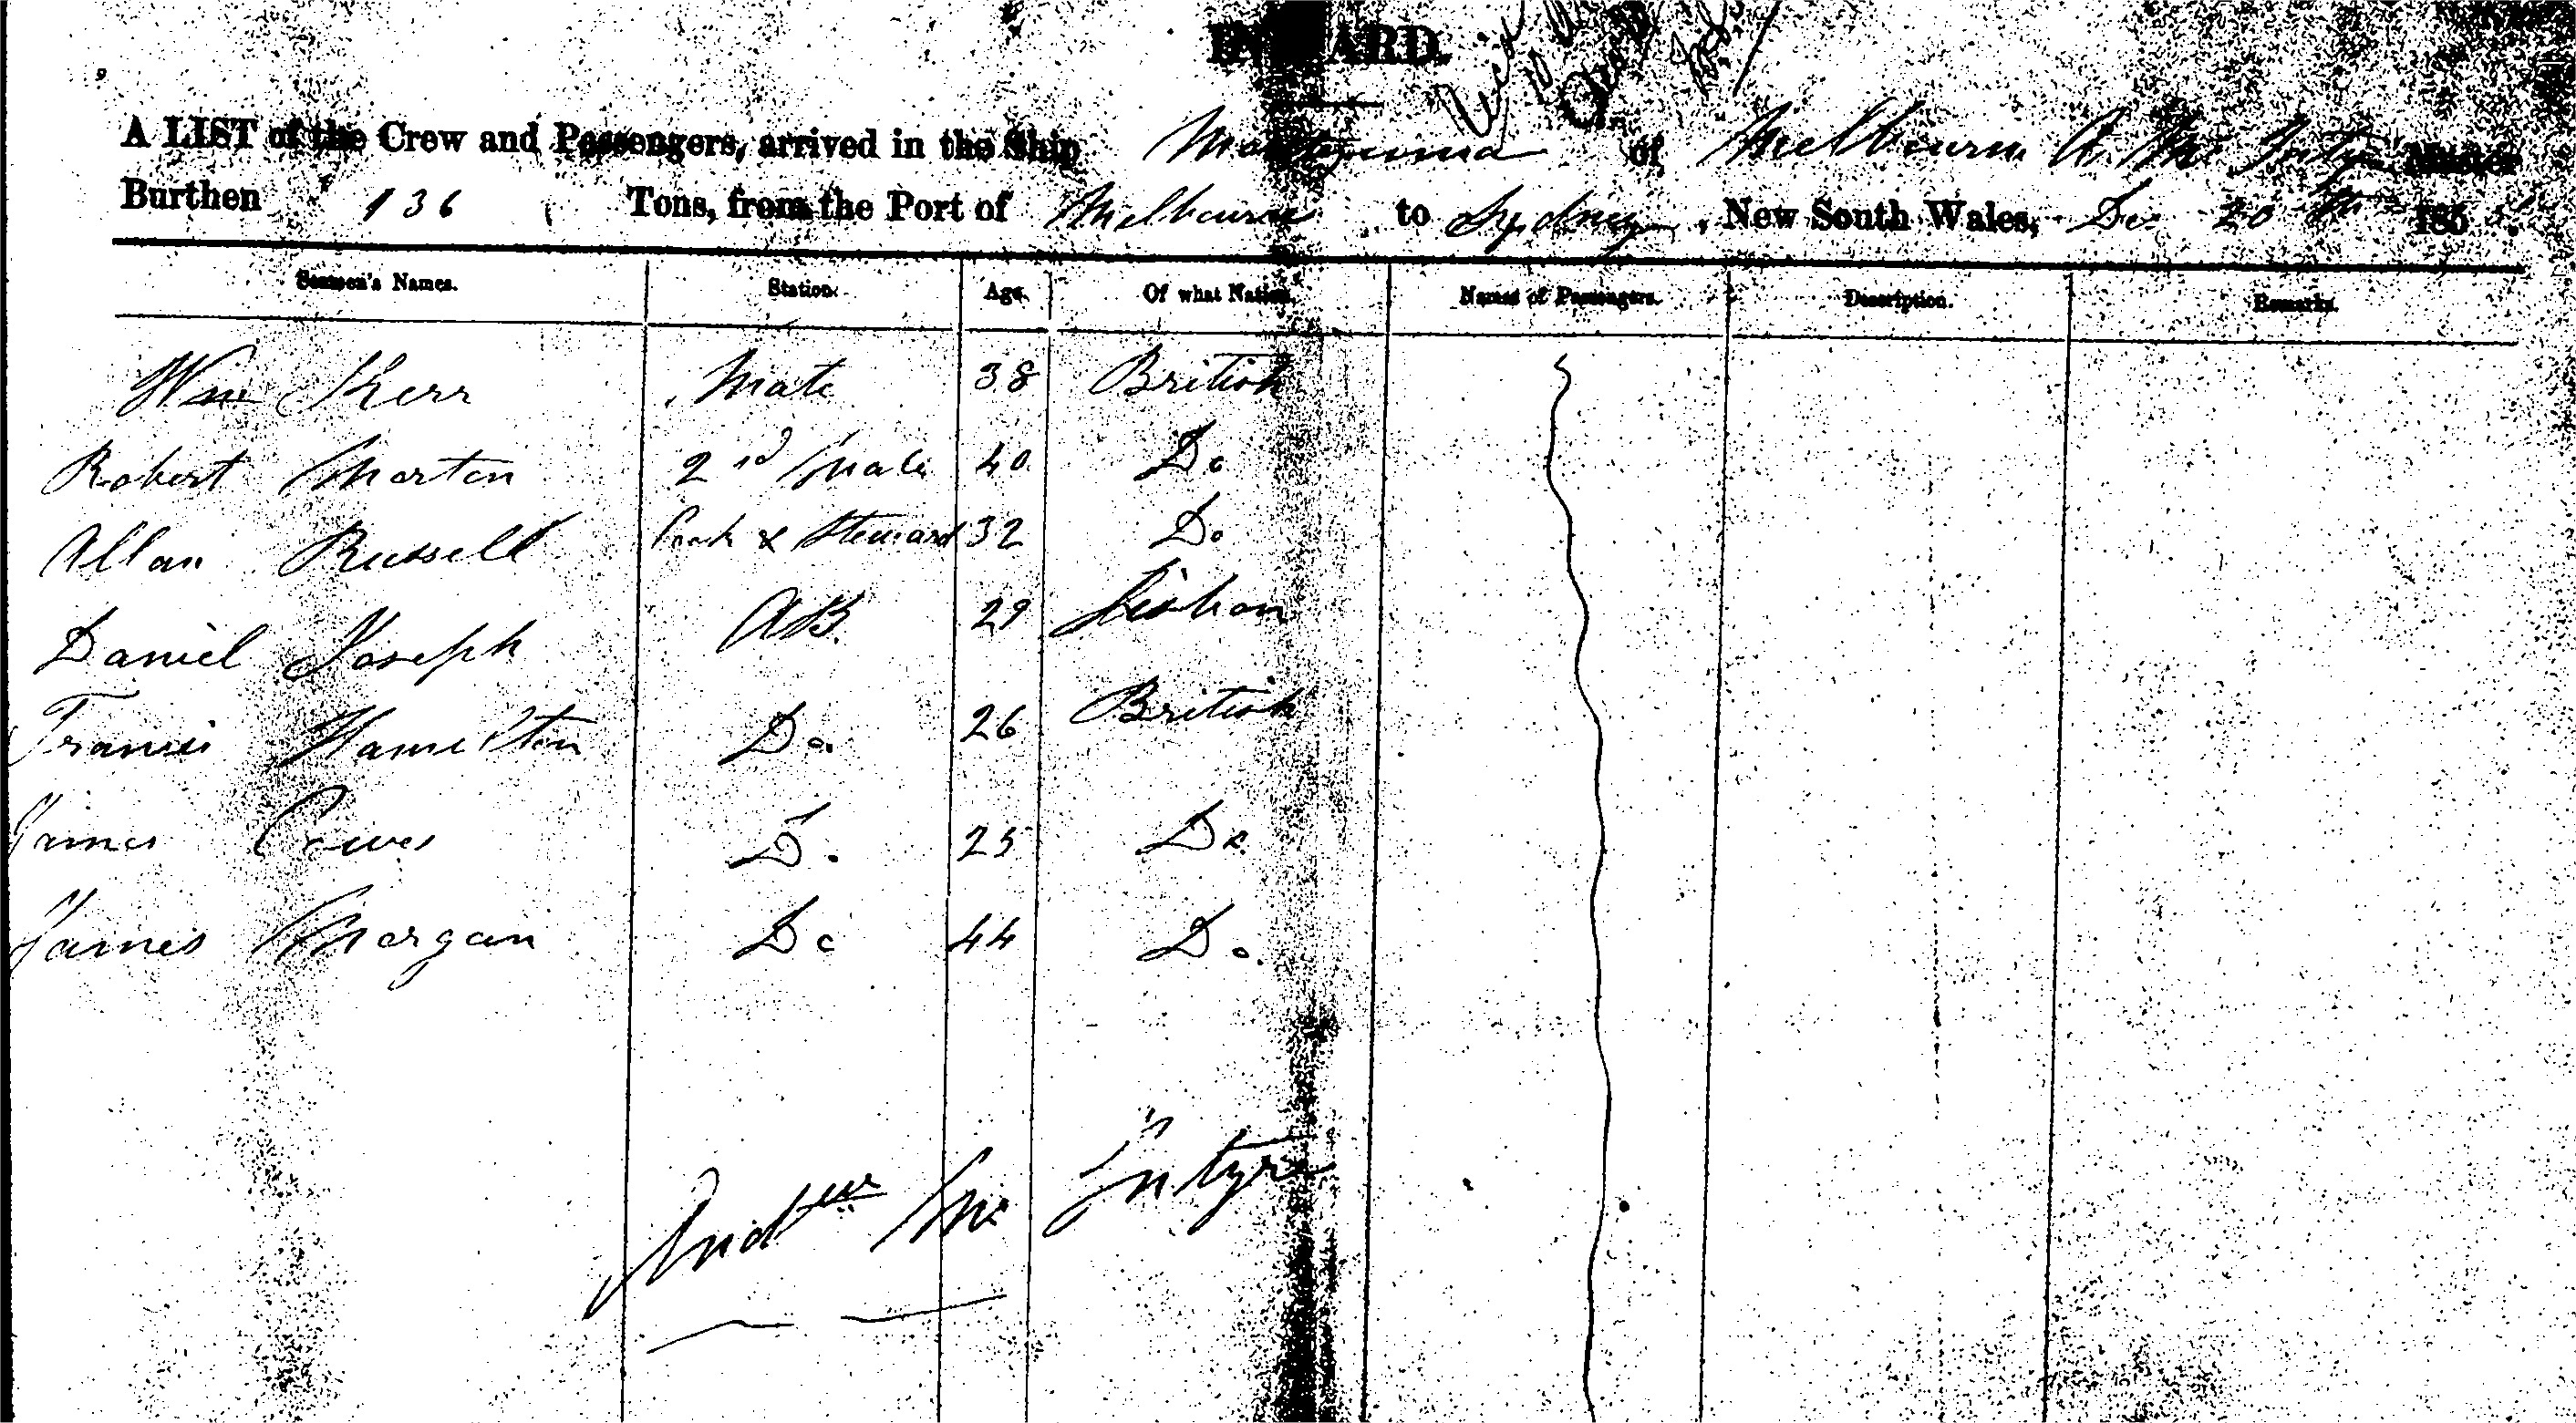 INWARD.
A LIST of the Crew and Passengers, arrived in the Ship Montezuma of Melbourne A. Mc Intyre Master
Burthen 136 Tons, from the Port of Melbourne to Sydney, New South Wales, Dec 20th 185
Seamen's Names. Station. Age. Of what Nation. Names of Passengers. Description. Remarks.
Wm Kerr Mate 38 British
Robert Morton 2nd Mate 40 Do
Allan Russell Cook & Steward 32 Do
Daniel Joseph AB. 29 Lisbon
Francis Hamilton Do. 26 British
James 25 Do
James Morgan Do 44 Do.
Andrew Mc Intyre